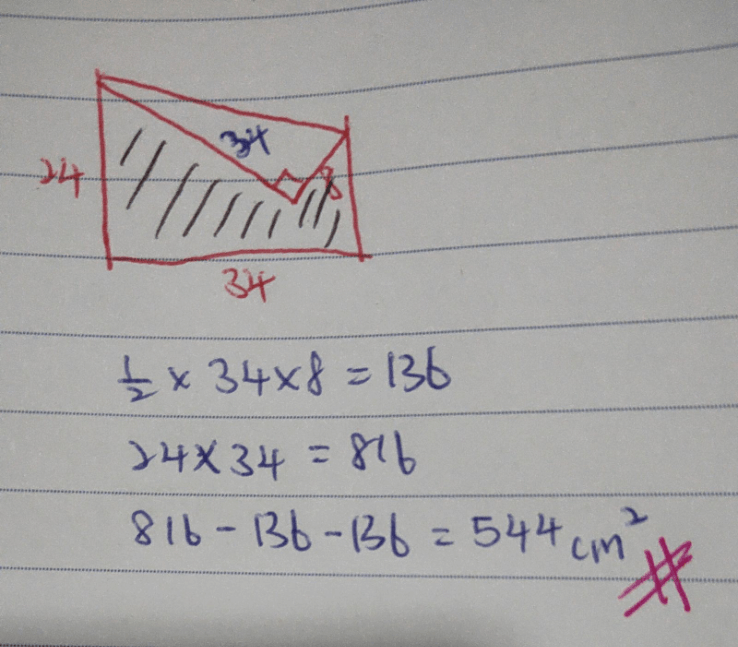 34
24
8
34
1/2 × 34 × 8 = 136
24 × 34 = 816
816 - 136 - 136 = 544 cm²